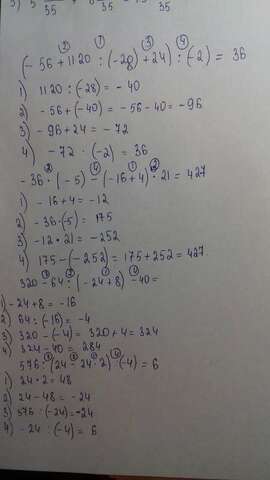 (-56+1120:(-28)+24):(-2)= 36
1) 1120:(-28)= -40
2) -56+(-40)= -56-40= -96
3) -96+24= -72
4) -72:(-2)= 36
-36·(-5)-(-16+4)·21= 427
1) -16+4= -12
2) -36·(-5)= 175
3) -12·21= -252
4) 175-(-252)= 175+252= 427
320-64:(-24+8)-40=
1) -24+8= -16
2) 64:(-16)= -4
3) 320-(-4)= 320+4= 324
4) 324-40= 284
576:(24-24·2):(-4)= 6
1) 24·2= 48
2) 24-48= -24
3) 576:(-24)= -24
4) -24:(-4)= 6